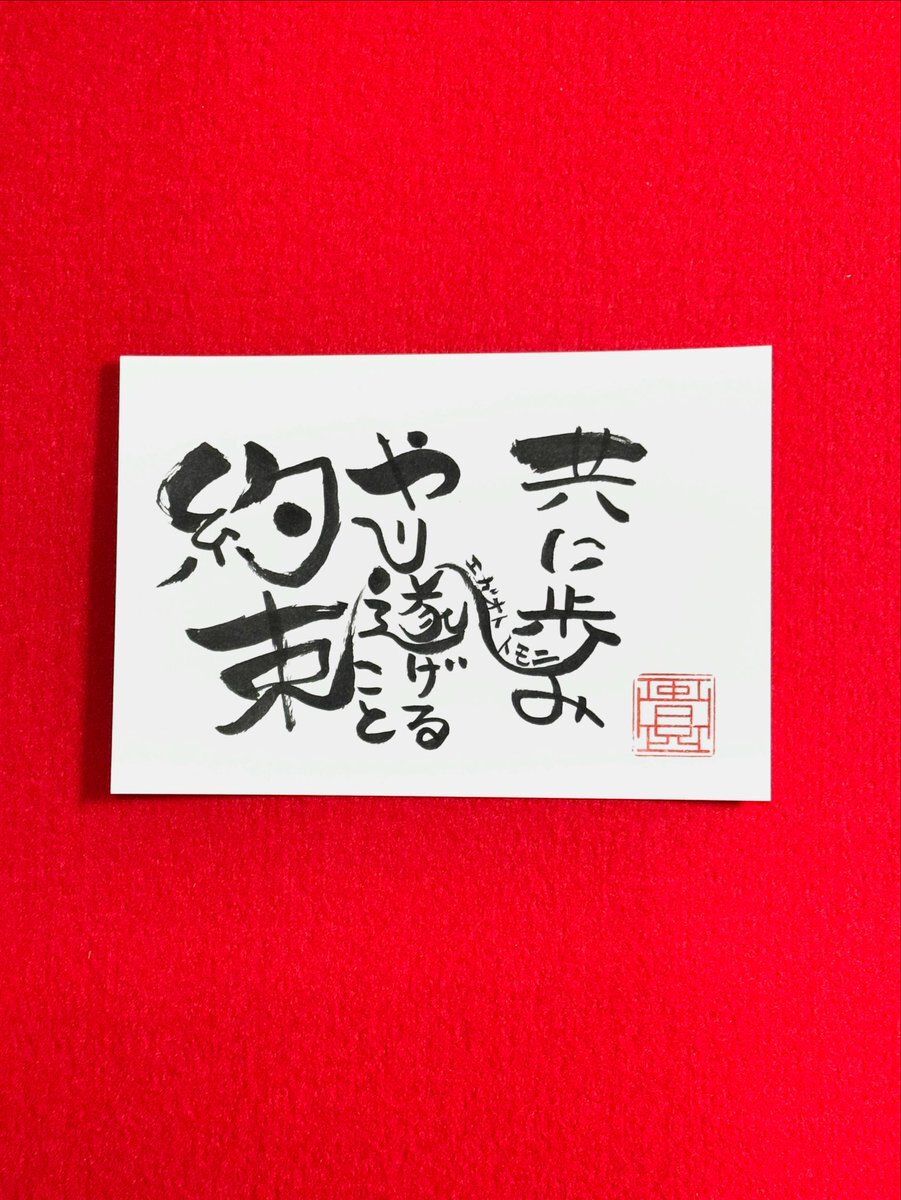 共に歩み
エガオト
トモニ
やり遂げる
こと
約束